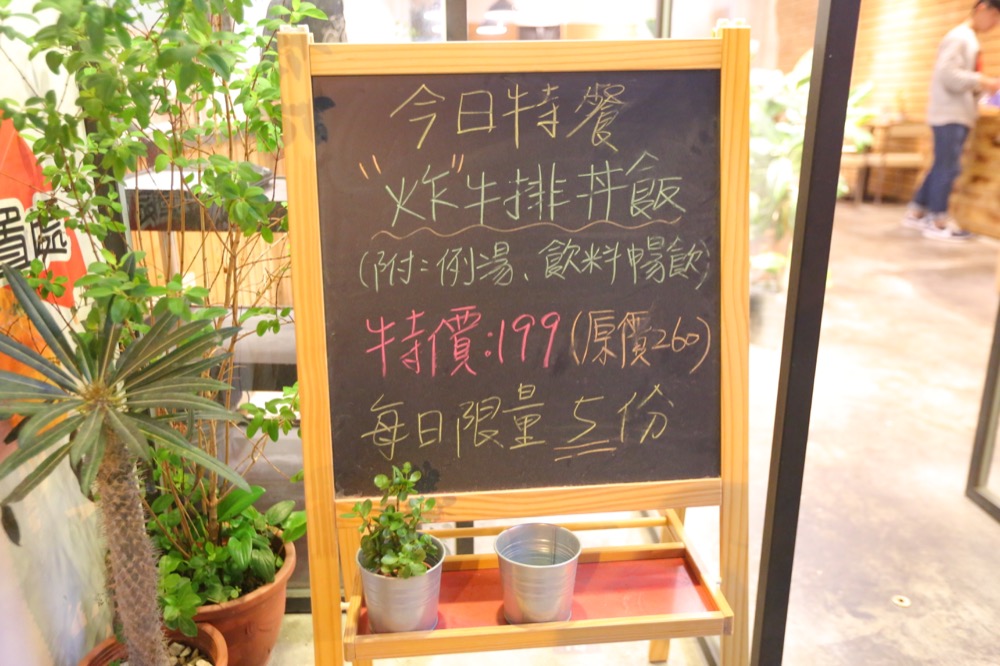 今日特餐
"炸"牛排丼飯
(附:例湯、飲料暢飲)
特價:199(原價260)
每日限量5份